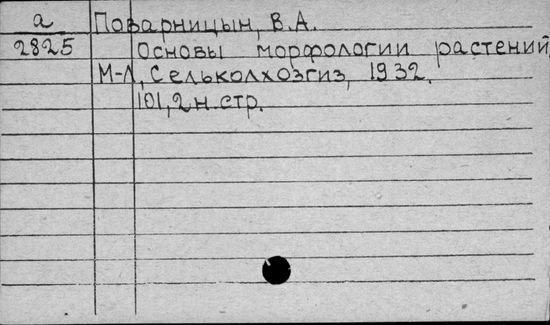 а Поварницын, В.А.
2825 Основы морфологии растений,
М-Л, Сельколхозгиз, 1932.
101, 2 н. стр.